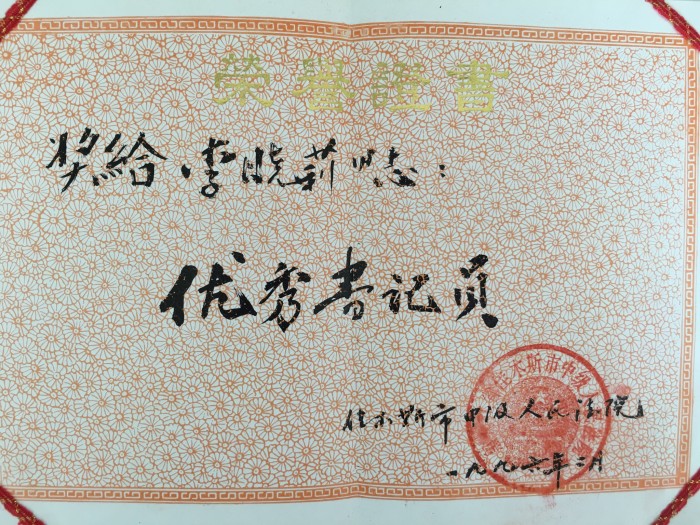 榮譽證書
奖给 李晓莉同志：
优秀书记员
佳木斯市中级人民法院
一九九六年二月
佳木斯市中级